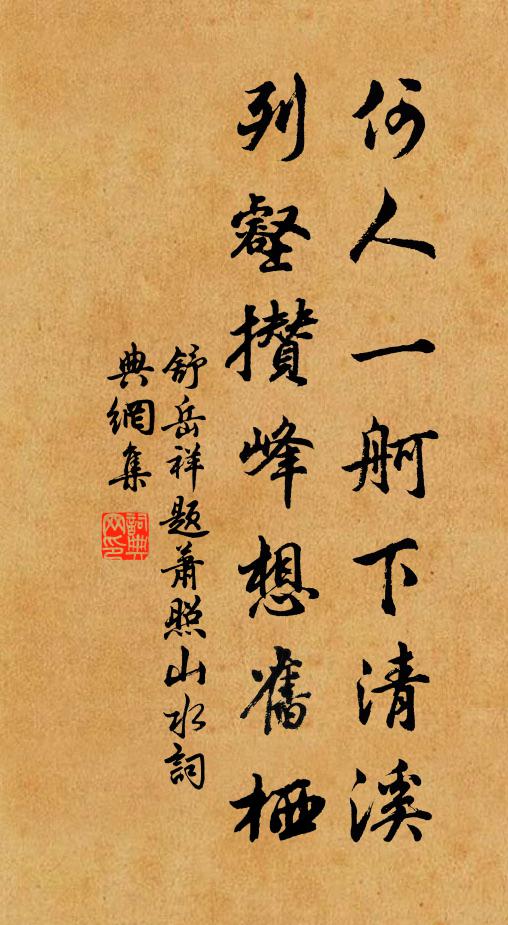 何人一舸下清溪
列壑攢峰想舊栖
舒岳祥題蕭照山水詞
典網集
詞典網印